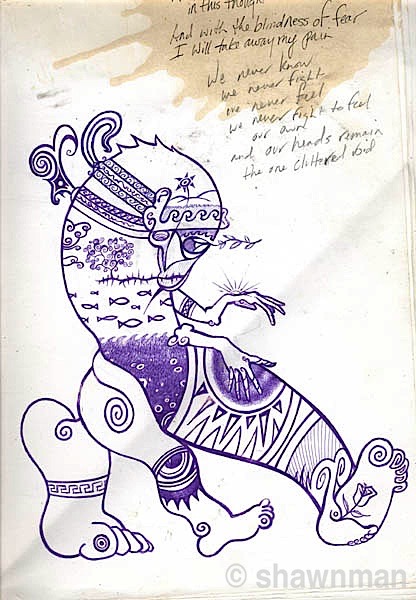 in this thought
And with the blindness of fear
I will take away my pain
We never know
we never fight
we never feel
we never fight to feel
our own
and our heads remain
the one cluttered
© shawnman